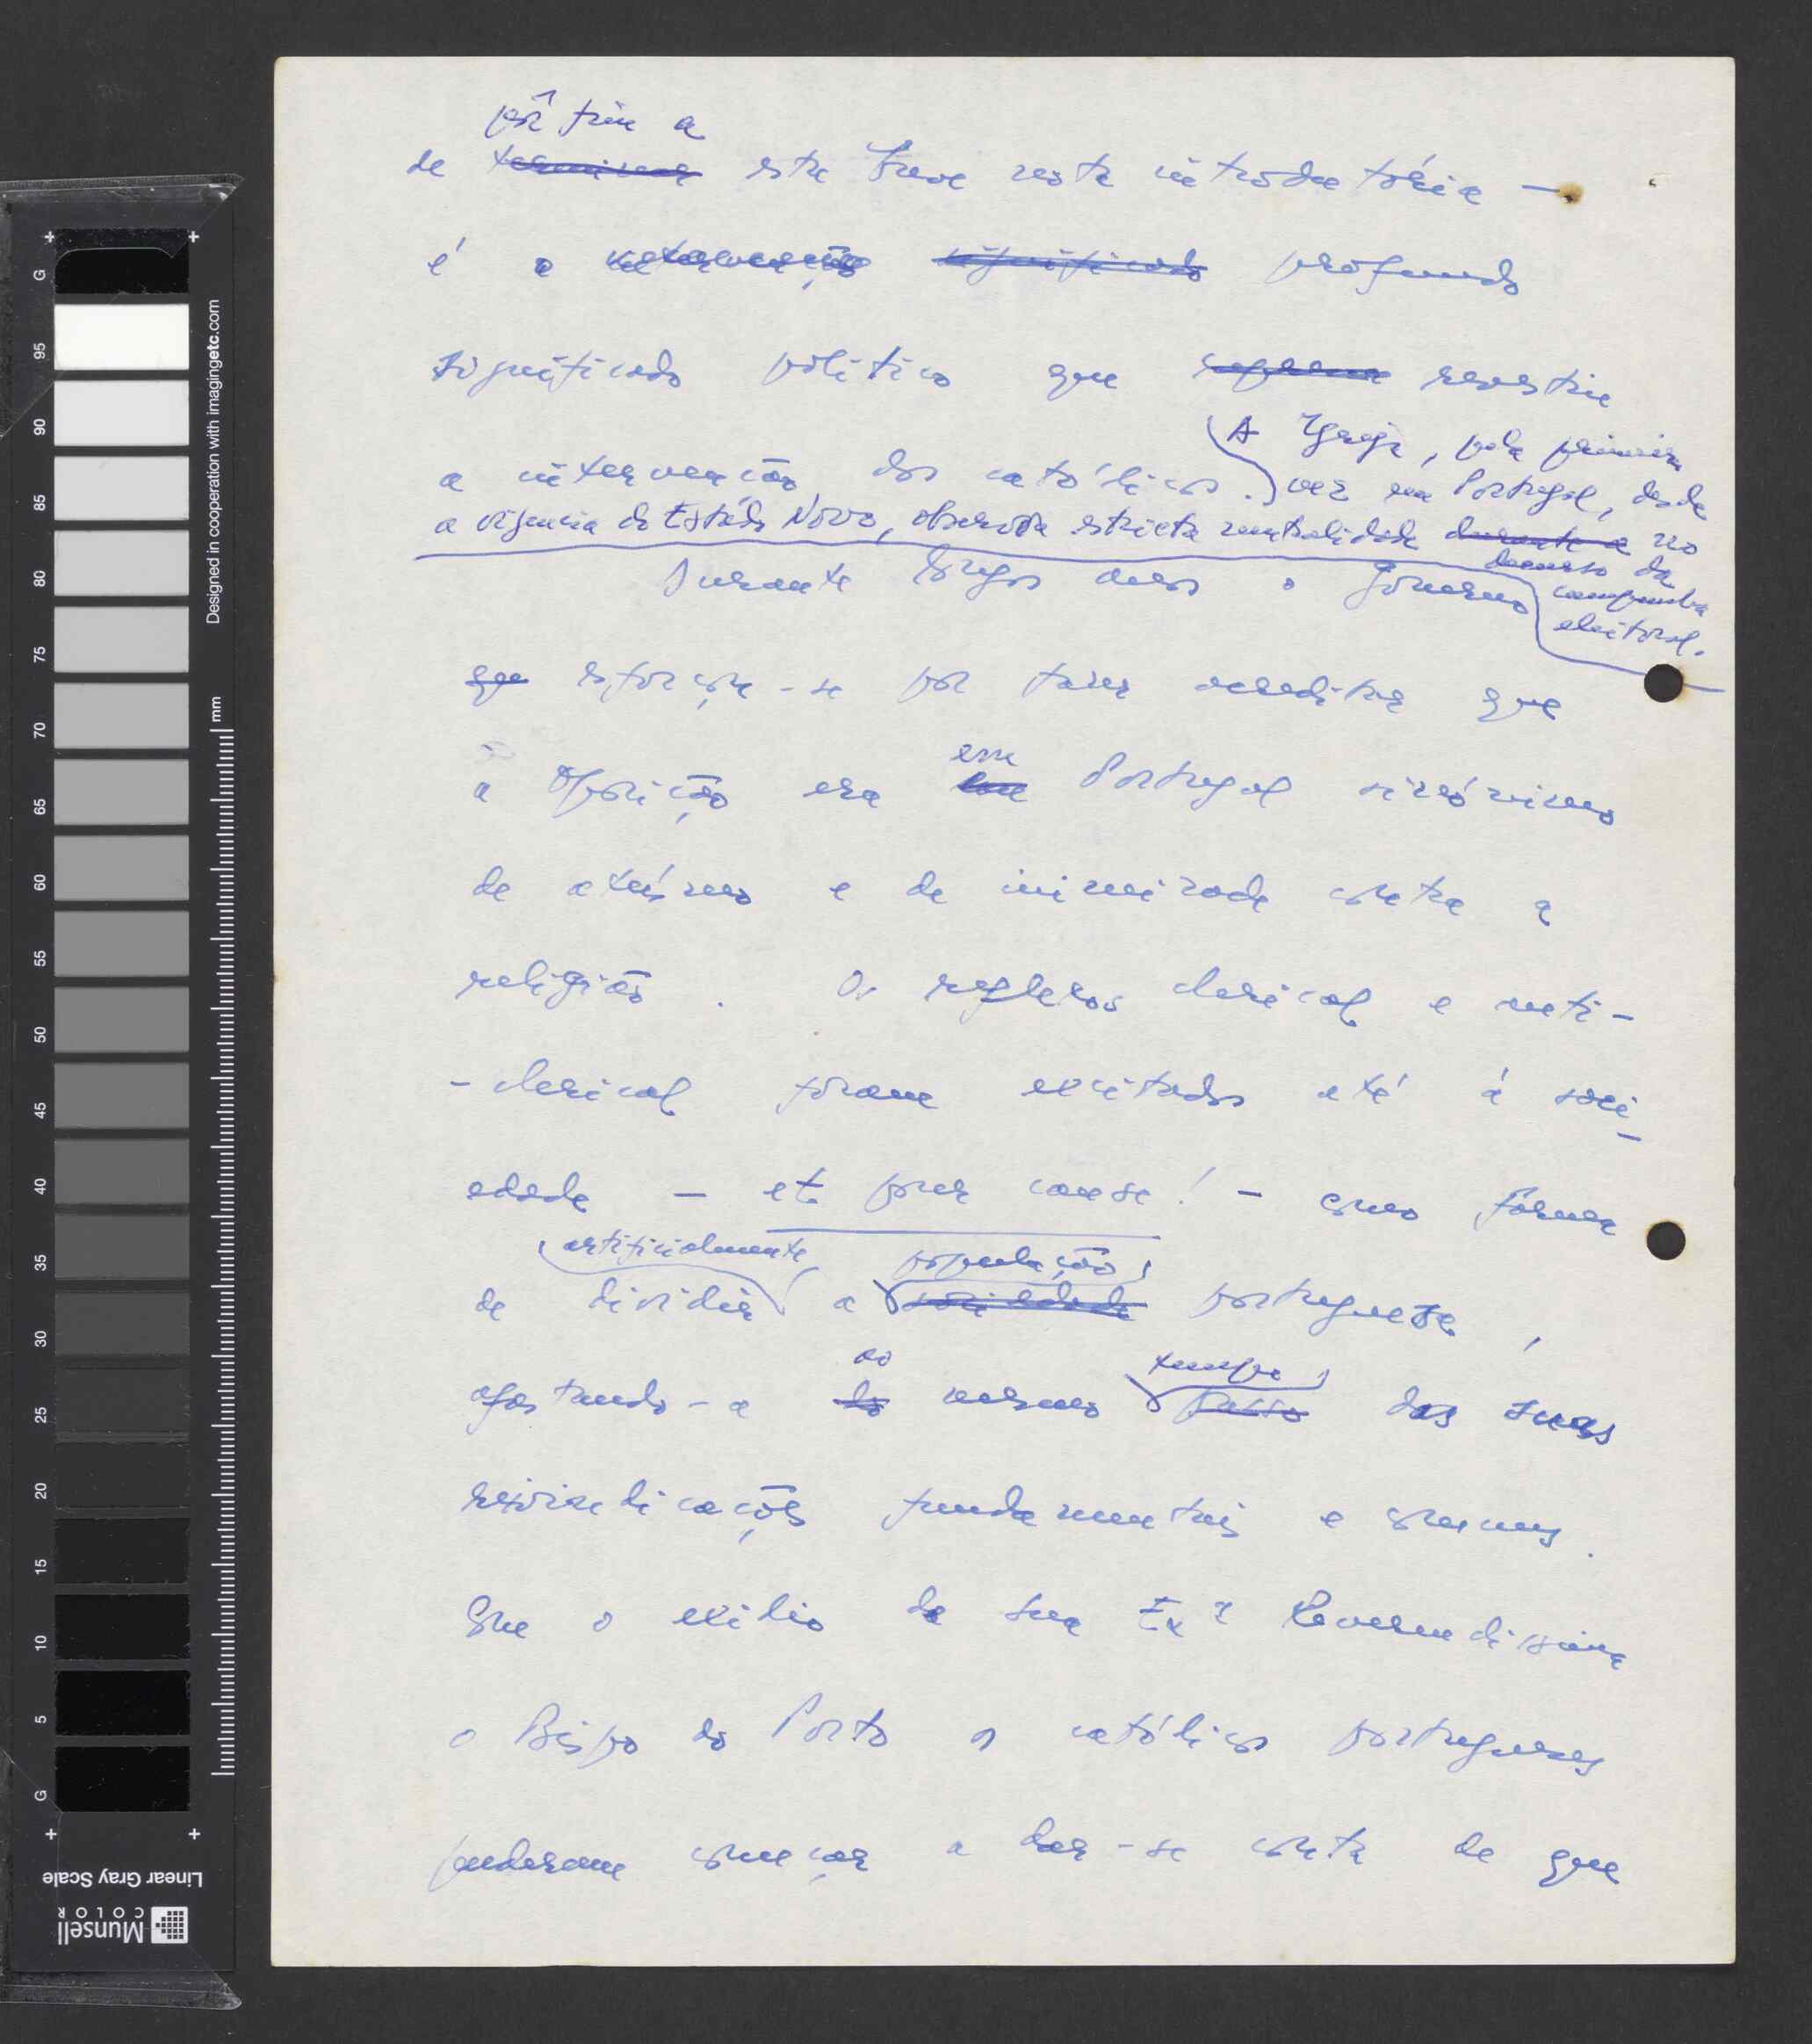 pôr fim a
de terminar esta breve nota introdutória —
é o intervenção significado profundo
significado político que reveste
a intervenção dos católicos. A Igreja, pela primeira
vez em Portugal, desde
a vigência do Estado Novo, observou estricta neutralidade durante a no
decurso da
campanha
eleitoral.
Durante longos anos o Governo
que esforçou-se por fazer acreditar que
a Oposição era em Portugal sinónimo
de ateísmo e de inimizade contra a
religião. Os reflexos clerical e anti-
-clerical foram excitados até à soci-
edade — et pour cause! — como forma
artificialmente população
de dividir a sociedade portuguesa,
ao tempo
afastando-a do mesmo passo das suas
reivindicações fundamentais e comuns.
Com o exílio de Sua Exª Reverendíssima
o Bispo do Porto os católicos portugueses
puderam começar a dar-se conta de que
Designed in cooperation with imagingetc.com
mm
G 95 90 85 80 75 70 65 60 55 50 45 40 35 30 25 20 15 10 5 G
Linear Gray Scale
Munsell
COLOR